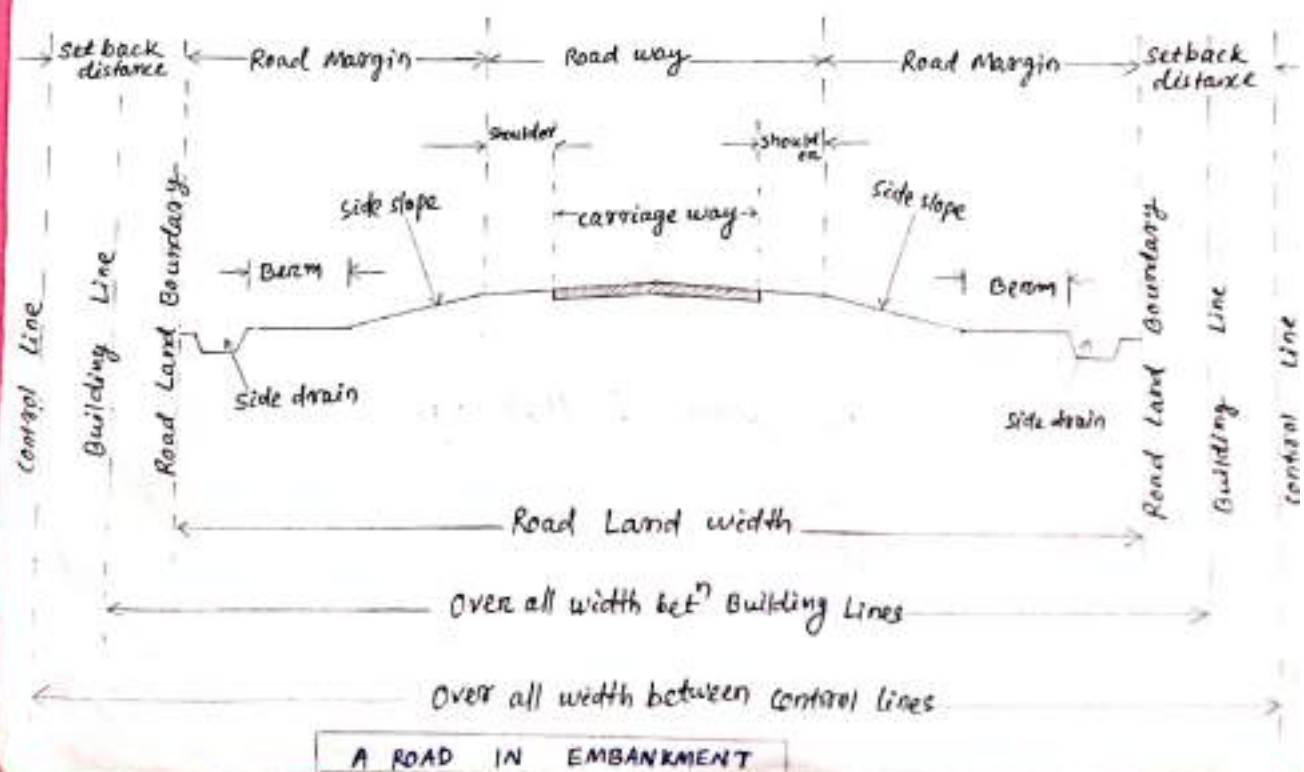 setback
distance
Road Margin
Road way
Road Margin
setback
distance
shoulder
should
er
side slope
carriage way
side slope
Berm
Berm
Control Line
Building Line
Road Land Boundary
side drain
side drain
Road Land Boundary
Building Line
Control Line
Road Land width
Over all width betⁿ Building Lines
Over all width between control lines
A ROAD IN EMBANKMENT